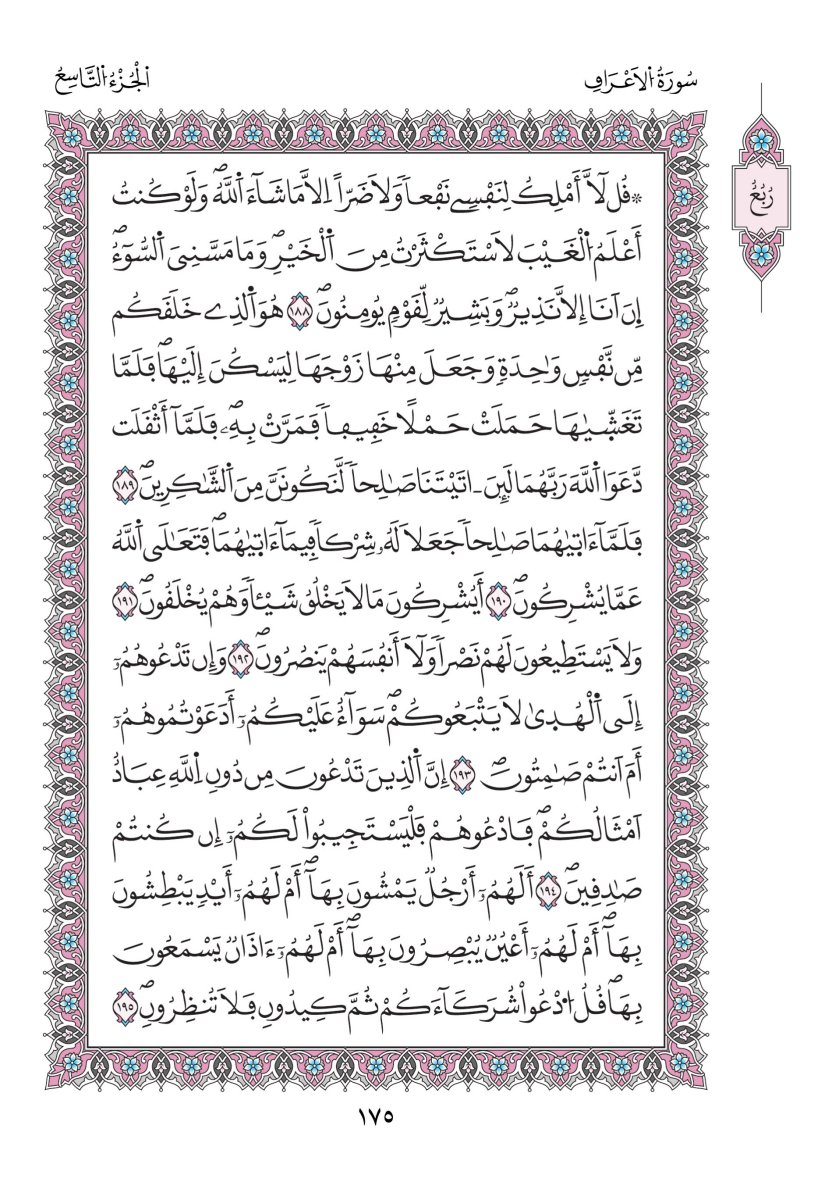 سُورَةُ اُ۬لَاعْرَافِ
اَ۬لْجُزْءُ اُ۬لتَّاسِعُ
رُبُعُ
۞ قُل لَّآ أَمْلِكُ لِنَفْسِے نَفْعاٗ وَلَا ضَرّاً اِلَّا مَا شَآءَ اَ۬للَّهُۖ وَلَوْ كُنتُ
أَعْلَمُ اُ۬لْغَيْبَ لَاسْتَكْثَرْتُ مِنَ اَ۬لْخَيْرِۖ وَمَا مَسَّنِيَ اَ۬لسُّوٓءُۖ
إِنَ اَنَا إِلَّا نَذِيرٞ وَبَشِيرٞ لِّقَوْمٖ يُومِنُونَۖ ١٨٨ هُوَ اَ۬لذِے خَلَقَكُم
مِّن نَّفْسٖ وَٰحِدَةٖ وَجَعَلَ مِنْهَا زَوْجَهَا لِيَسْكُنَ إِلَيْهَاۖ فَلَمَّا
تَغَشّ۪يٰهَا حَمَلَتْ حَمْلًا خَفِيفاٗ فَمَرَّتْ بِهِۦۖ فَلَمَّآ أَثْقَلَت
دَّعَوَا اَ۬للَّهَ رَبَّهُمَا لَئِنَ اٰتَيْتَنَا صَٰلِحاٗ لَّنَكُونَنَّ مِنَ اَ۬لشَّٰكِرِينَۖ ١٨٩
فَلَمَّآ ءَات۪يٰهُمَا صَٰلِحاٗ جَعَلَا لَهُۥ شِرْكاٗ فِيمَآ ءَات۪يٰهُمَاۖ فَتَعَٰلَي اَ۬للَّهُ
عَمَّا يُشْرِكُونَۖ ١٩٠ أَيُشْرِكُونَ مَا لَا يَخْلُقُ شَيْـٔاٗ وَهُمْ يُخْلَقُونَۖ ١٩١
وَلَا يَسْتَطِيعُونَ لَهُمْ نَصْراٗ وَلَآ أَنفُسَهُمْ يَنصُرُونَۖ ١٩٢ وَإِن تَدْعُوهُمُۥٓ
إِلَي اَ۬لْهُد۪يٰ لَا يَتْبَعُوكُمْۖ سَوَآءٌ عَلَيْكُمُۥٓ أَدَعَوْتُمُوهُمُۥٓ
أَمَ اَنتُمْ صَٰمِتُونَۖ ١٩٣ إِنَّ اَ۬لذِينَ تَدْعُونَ مِن دُونِ اِ۬للَّهِ عِبَادٌ
اَمْثَالُكُمْۖ فَادْعُوهُمْ فَلْيَسْتَجِيبُواْ لَكُمُۥٓ إِن كُنتُمْ
صَٰدِقِينَۖ ١٩٤ أَلَهُمُۥٓ أَرْجُلٞ يَمْشُونَ بِهَآۖ أَمْ لَهُمُۥٓ أَيْدٖ يَبْطِشُونَ
بِهَآۖ أَمْ لَهُمُۥٓ أَعْيُنٞ يُبْصِرُونَ بِهَآۖ أَمْ لَهُمُۥٓ ءَاذَانٞ يَسْمَعُونَ
بِهَاۖ قُلُ اُ۟دْعُواْ شُرَكَآءَكُمْ ثُمَّ كِيدُونِ فَلَا تُنظِرُونِۖ ١٩٥
١٧٥